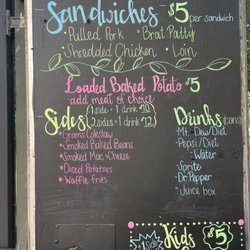 Sandwiches - $5 per sandwich
• Pulled Pork • Brat Patty
• Shredded Chicken • Loin
Loaded Baked Potato $5
add meat of choice
Sides (1 side - 1 drink $10)
(2 sides - 1 drink $12)
* Grams Coleslaw
* Smoked Baked Beans
* Smoked Mac n Cheese
* Diced Potatoes
* Waffle Fries
Drinks (cans)
Mt. Dew/Diet
Pepsi/Diet
Water
Sprite
Dr. Pepper
Juice box
Kids $5
1 side